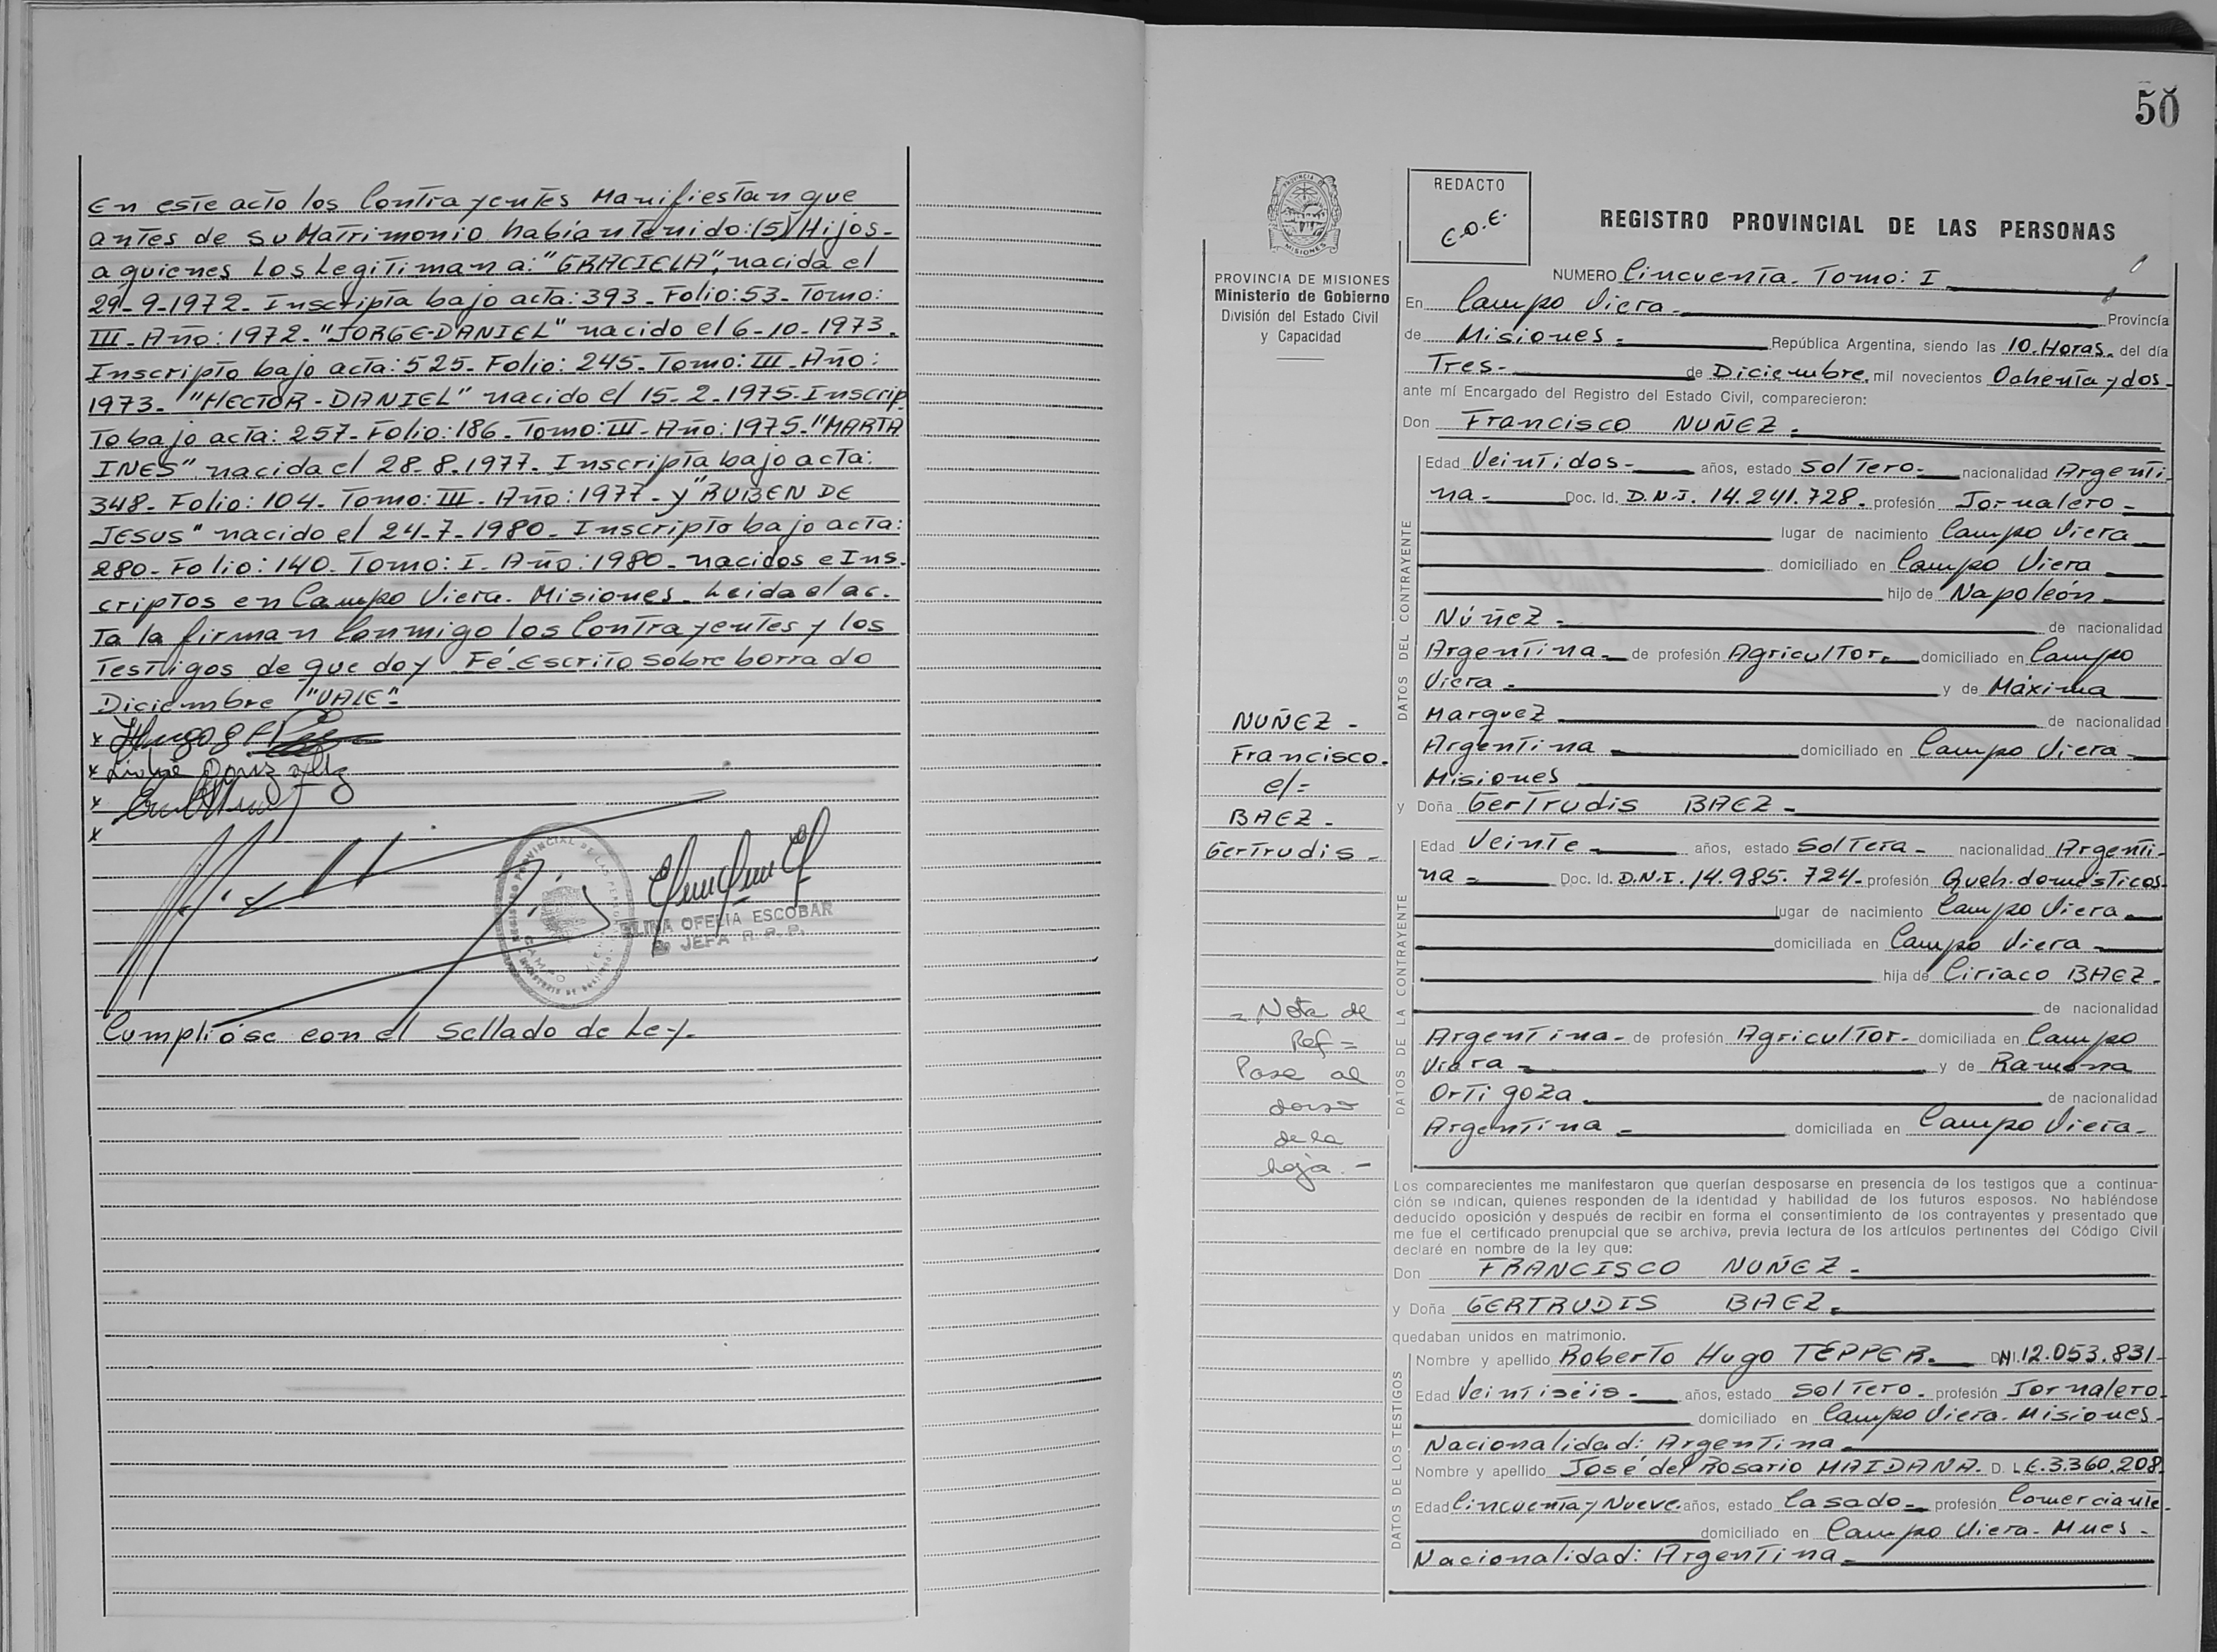 En este acto los Contrayentes Manifiestan que
antes de su Matrimonio habian tenido: (5) Hijos-
a quienes los Legitiman a: "GRACIELA", nacida el
29-9-1972- Inscripta bajo acta: 393- Folio: 53- Tomo:
III- Año: 1972- "JORGE-DANIEL" nacido el 6-10-1973.
Inscripto bajo acta: 525- Folio: 245- Tomo: III- Año:
1973- "HECTOR-DANIEL" nacido el 15-2-1975- Inscrip
To bajo acta: 257- Folio: 186- Tomo: III- Año: 1975- "MARTA
INES" nacida el 28-8-1977- Inscripta bajo acta:
348- Folio: 104- Tomo: III- Año: 1977- y "RUBEN DE
JESUS" nacido el 24-7-1980- Inscripto bajo acta:
280- Folio: 140- Tomo: I- Año: 1980- nacidos e Ins-
criptos en Campo Viera- Misiones- Leida el ac-
Ta la firman Conmigo los Contrayentes y los
Testigos de que doy Fé- Escrito sobre borrado
Diciembre "VALE"-
x
x
x
x
REGISTRO PROVINCIAL DE LAS PERSONAS
ELINA OFELIA ESCOBAR
JEFA R.P.P.
Cumplióse con el Sellado de Ley-
50
PROVINCIA DE MISIONES
Ministerio de Gobierno
División del Estado Civil
y Capacidad
NUÑEZ -
Francisco-
c/=
BAEZ -
Gertrudis -
= Nota de
Ref =
Pase al
dorso
de la
hoja.-
REDACTO
E.O.E.
REGISTRO PROVINCIAL DE LAS PERSONAS
NUMERO Cincuenta- Tomo: I
En Campo Viera- Provincia
de Misiones- República Argentina, siendo las 10. Horas- del día
Tres- de Diciembre- mil novecientos Ochenta y dos-
ante mí Encargado del Registro del Estado Civil, comparecieron:
Don Francisco NUÑEZ-
DATOS DEL CONTRAYENTE
Edad Veintidos- años, estado Soltero- nacionalidad Argenti-
na- Doc. Id. D.N.I. 14.241.728- profesión Jornalero-
lugar de nacimiento Campo Viera
domiciliado en Campo Viera
hijo de Napoleón-
Núñez- de nacionalidad
Argentina- de profesión Agricultor- domiciliado en Campo
Viera- y de Máxima
Marquez de nacionalidad
Argentina- domiciliado en Campo Viera-
Misiones
y Doña Gertrudis BAEZ-
DATOS DE LA CONTRAYENTE
Edad Veinte- años, estado Soltera- nacionalidad Argenti-
na- Doc. Id. D.N.I. 14.985.724- profesión Queh. domésticos-
lugar de nacimiento Campo Viera
domiciliada en Campo Viera-
hija de Ciriaco BAEZ-
de nacionalidad
Argentina- de profesión Agricultor- domiciliada en Campo
Viera- y de Ramona
Ortigoza- de nacionalidad
Argentina- domiciliada en Campo Viera-
Los comparecientes me manifestaron que querían desposarse en presencia de los testigos que a continua-
ción se indican, quienes responden de la identidad y habilidad de los futuros esposos. No habiéndose
deducido oposición y después de recibir en forma el consentimiento de los contrayentes y presentado que
me fue el certificado prenupcial que se archiva, previa lectura de los artículos pertinentes del Código Civil
declaré en nombre de la ley que:
Don FRANCISCO NUÑEZ-
y Doña GERTRUDIS BAEZ-
quedaban unidos en matrimonio.
DATOS DE LOS TESTIGOS
Nombre y apellido Roberto Hugo TEPPER- DNI. 12.053.831-
Edad Veintiséis- años, estado Soltero- profesión Jornalero-
domiciliado en Campo Viera- Misiones-
Nacionalidad: Argentina-
Nombre y apellido José del Rosario MAIDANA- D. L.E. 3.360.208-
Edad Cincuenta y Nueve- años, estado Casado- profesión Comerciante-
domiciliado en Campo Viera- Mnes-
Nacionalidad: Argentina-